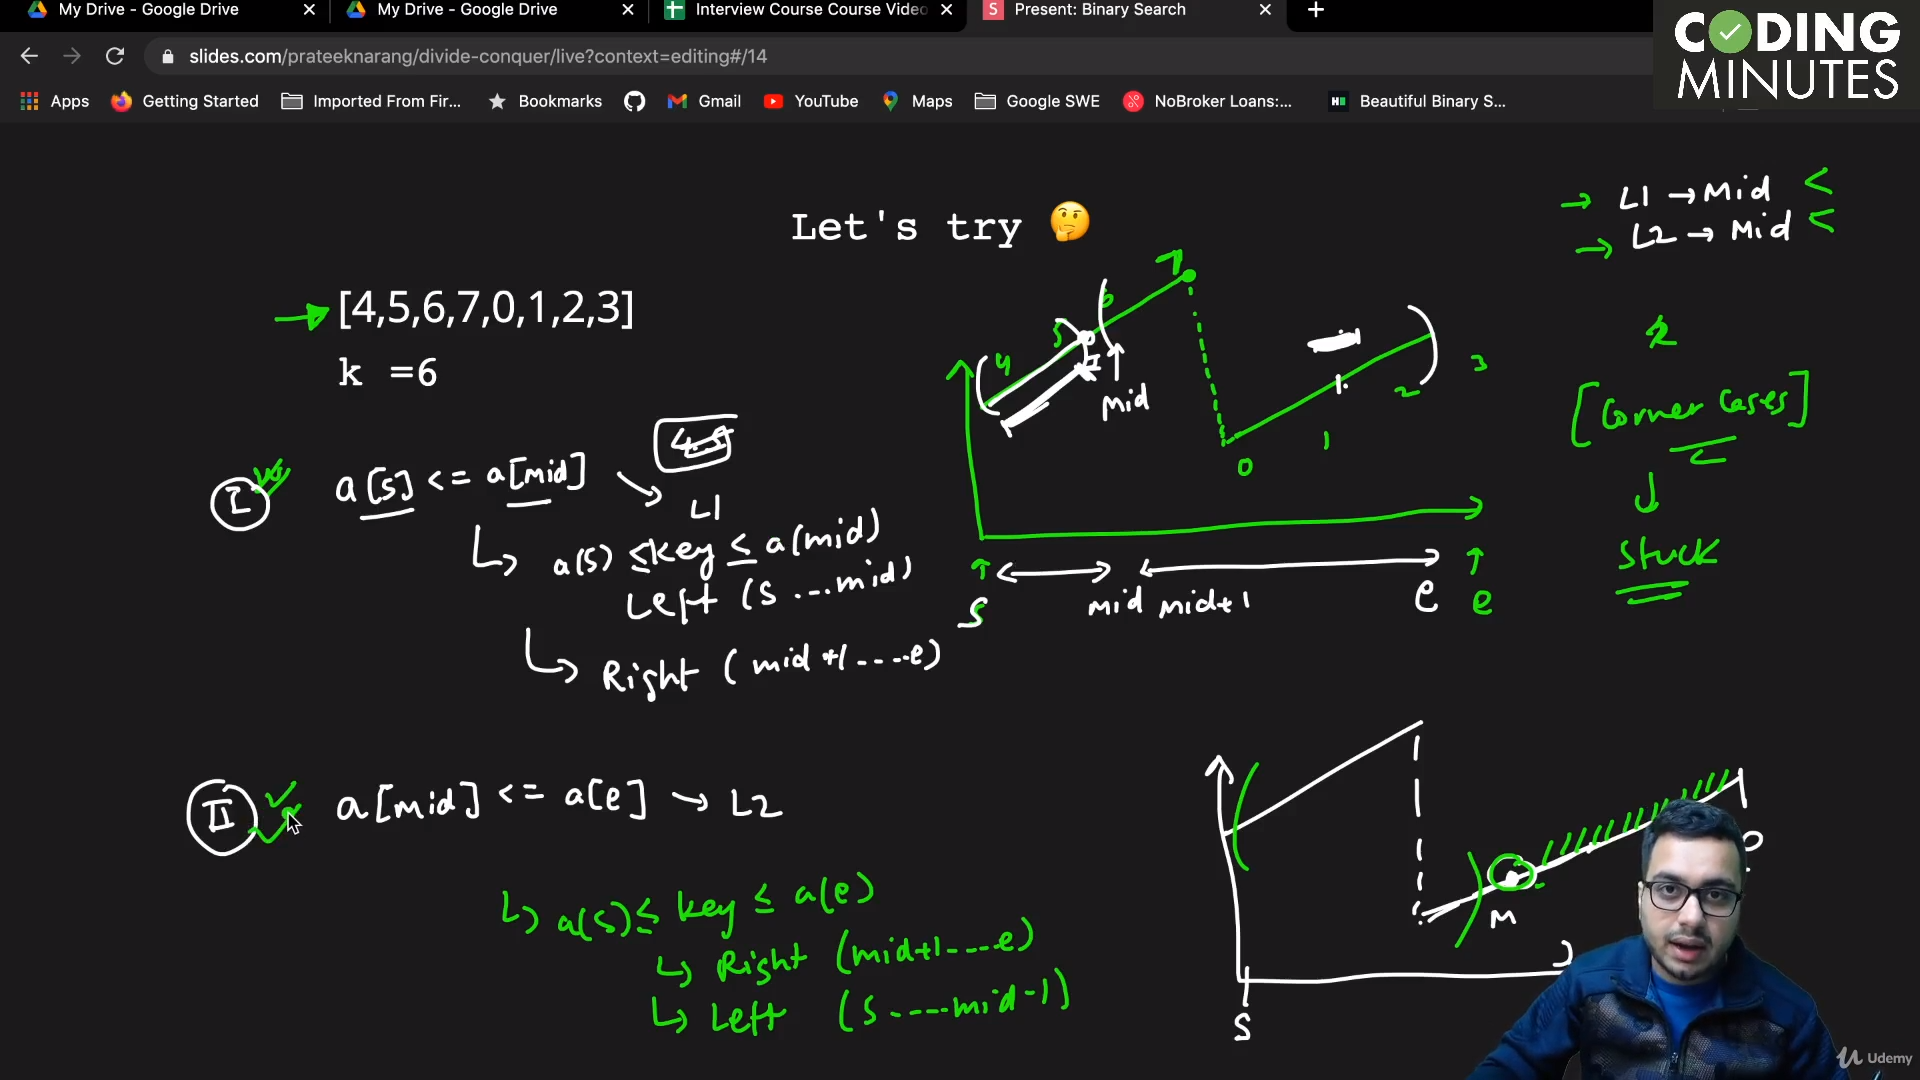 My Drive - Google Drive
My Drive - Google Drive
Interview Course Course Video
Present: Binary Search
slides.com/prateeknarang/divide-conquer/live?context=editing#/14
CODING
MINUTES
Apps
Getting Started
Imported From Fir...
Bookmarks
Gmail
YouTube
Maps
Google SWE
NoBroker Loans:...
Beautiful Binary S...
Let's try 🤔
→ L1 → Mid <
→ L2 → Mid <
→ [4,5,6,7,0,1,2,3]
k =6
4 5 6 7
mid
0 1 2 3
[Corner Cases]
↓
Stuck
I a[s] <= a[mid] → L1
↳ a(s) ≤ key ≤ a(mid)
Left (s ... mid)
↳ Right (mid+1 ....e)
s mid mid+1 e e
II a[mid] <= a[e] → L2
↳ a(s) ≤ key ≤ a(e)
↳ Right (mid+1 ....e)
↳ Left (s ....mid-1)
M
s
Udemy